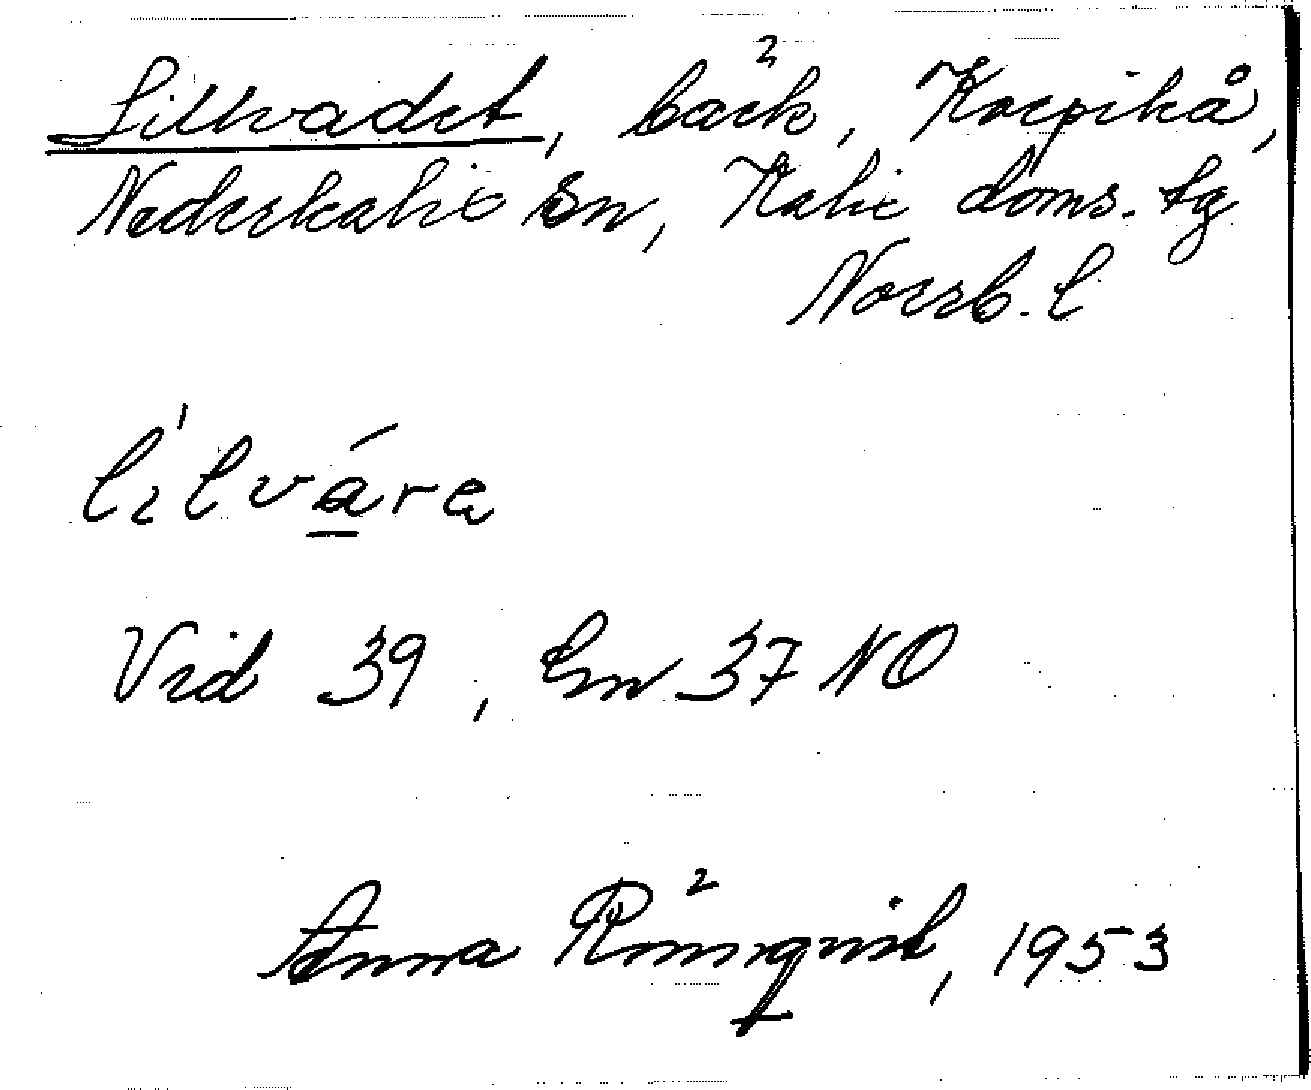 Lillvadet, bäck, Korpikå,
Nederkalix sn, Kalix doms. tg
Norrb. l
lìlváre
Vid 39, Em 37 NO
Anna Rönnqvist, 1953